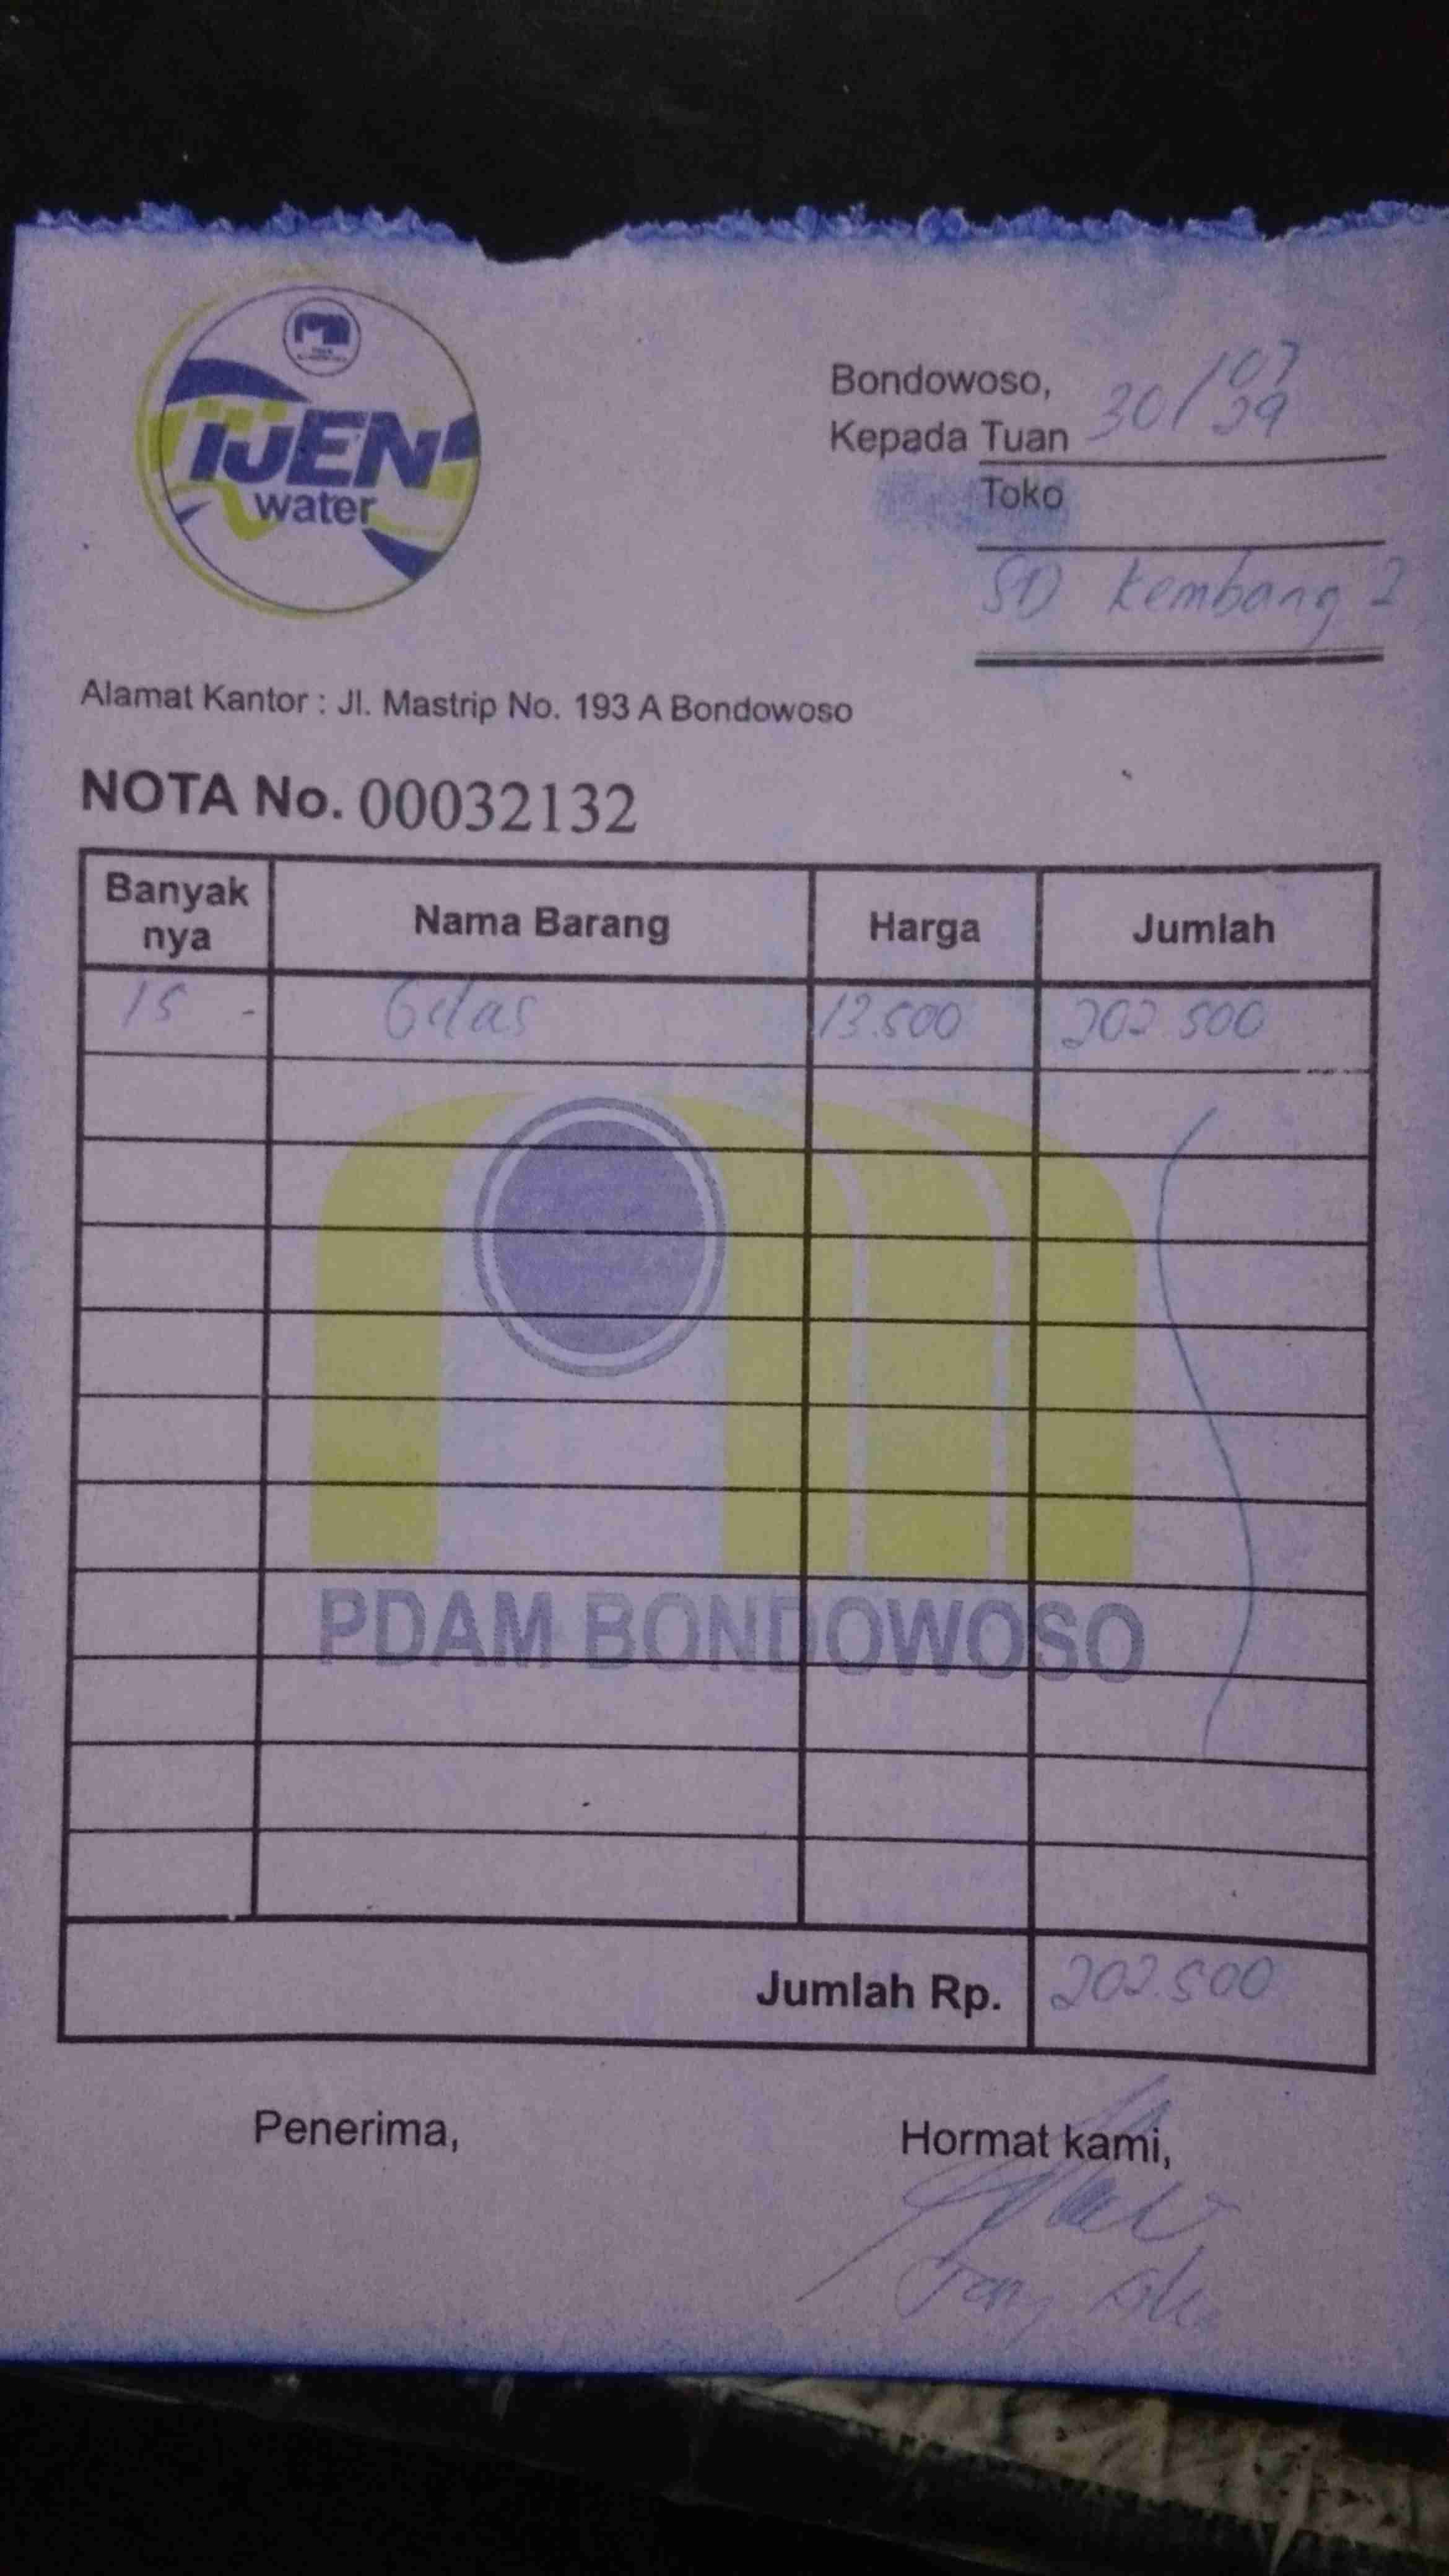 IJEN
water
Bondowoso, 30/07
Kepada Tuan
Toko
SD Kembang 2
Alamat Kantor : Jl. Mastrip No. 193 A Bondowoso
NOTA No. 00032132
Banyak nya Nama Barang Harga Jumlah
15 - Gelas 13.500 202.500
PDAM BONDOWOSO
Jumlah Rp. 202.500
Penerima, Hormat kami,